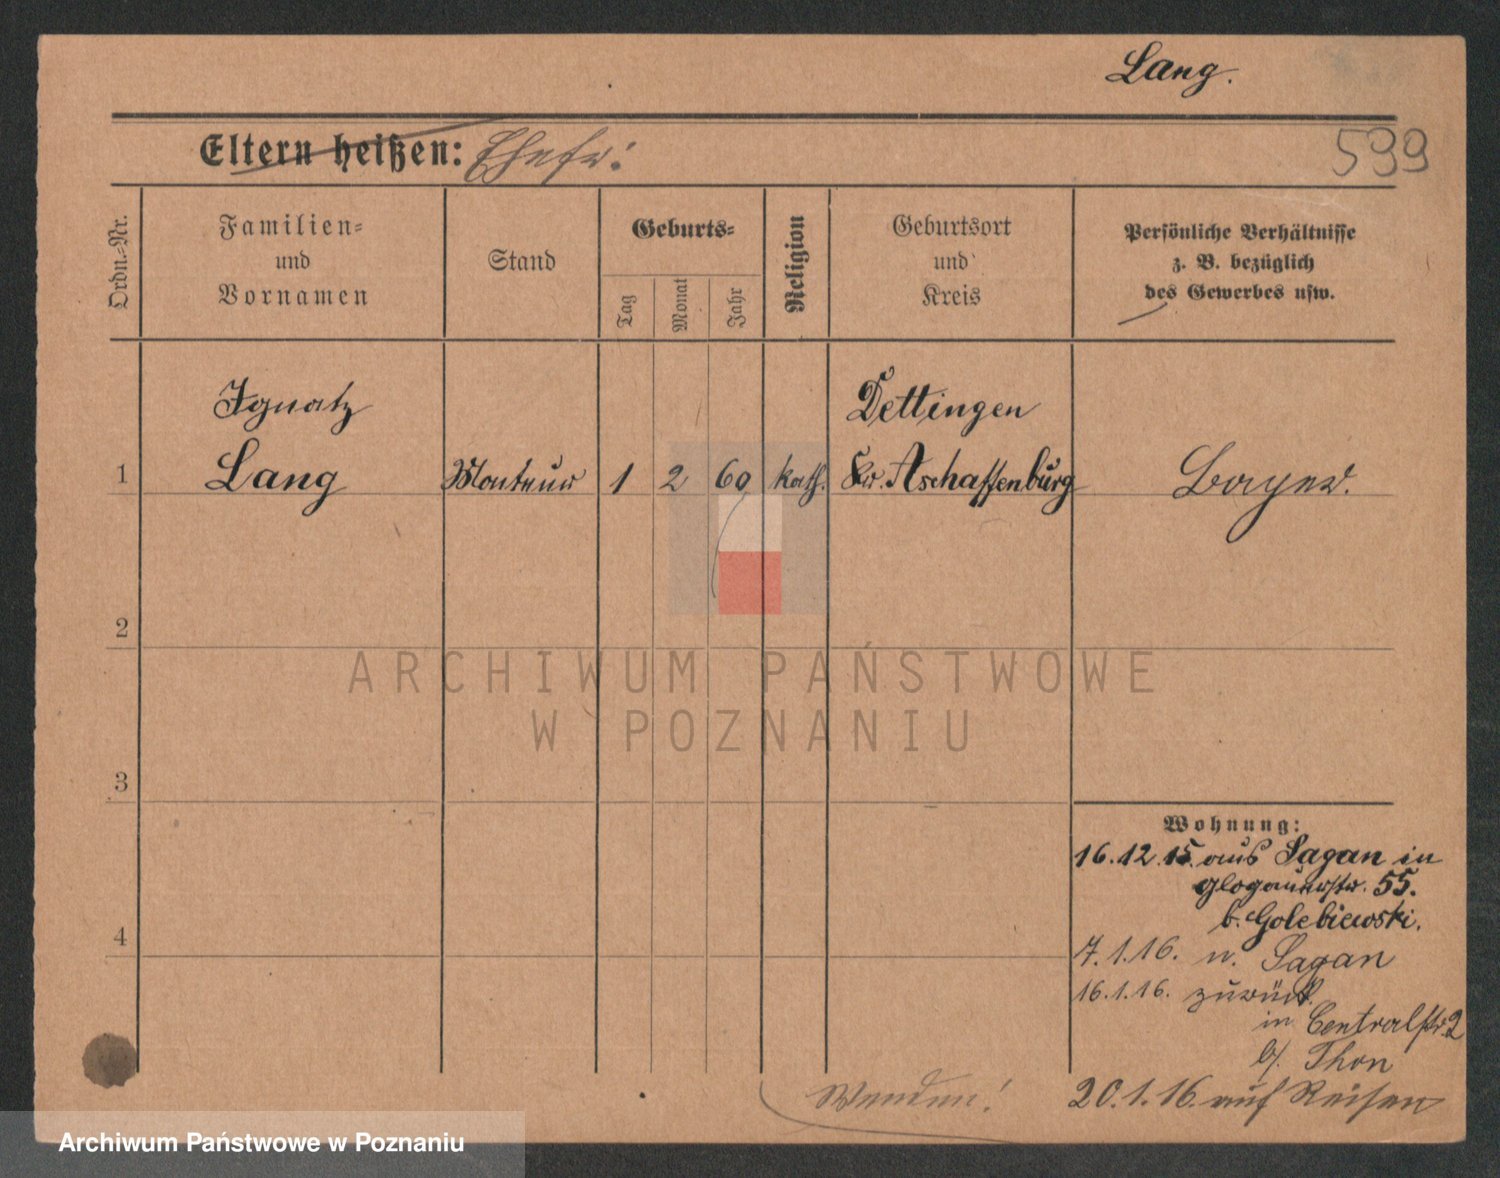 Lang.
Eltern heißen: Ehefr:
599
Ordn.-Nr.
Familien-
und
Vornamen
Stand
Geburts-
Tag
Monat
Jahr
Religion
Geburtsort
und
Kreis
Persönliche Verhältnisse
z. B. bezüglich
des Gewerbes usw.
Ignatz Dettingen
1 Lang Monteur 1 2 60 kath. Kr. Aschaffenburg Bayer.
2
ARCHIWUM PAŃSTWOWE
W POZNANIU
3
Wohnung:
16.12.15. aus Sagan in
Glogauerstr. 55.
b. Golebiewski.
4
7.1.16. n. Sagan
16.1.16. zurück
in Centralstr. 2
b/. Thon
Wenden! 20.1.16. auf Reisen
Archiwum Państwowe w Poznaniu